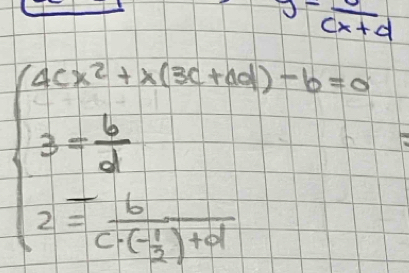 y = b/(cx+d)
4cx² + x(3c+4d) - b = 0
3 = b/d
2 = b/(c·(-1/2)+d)